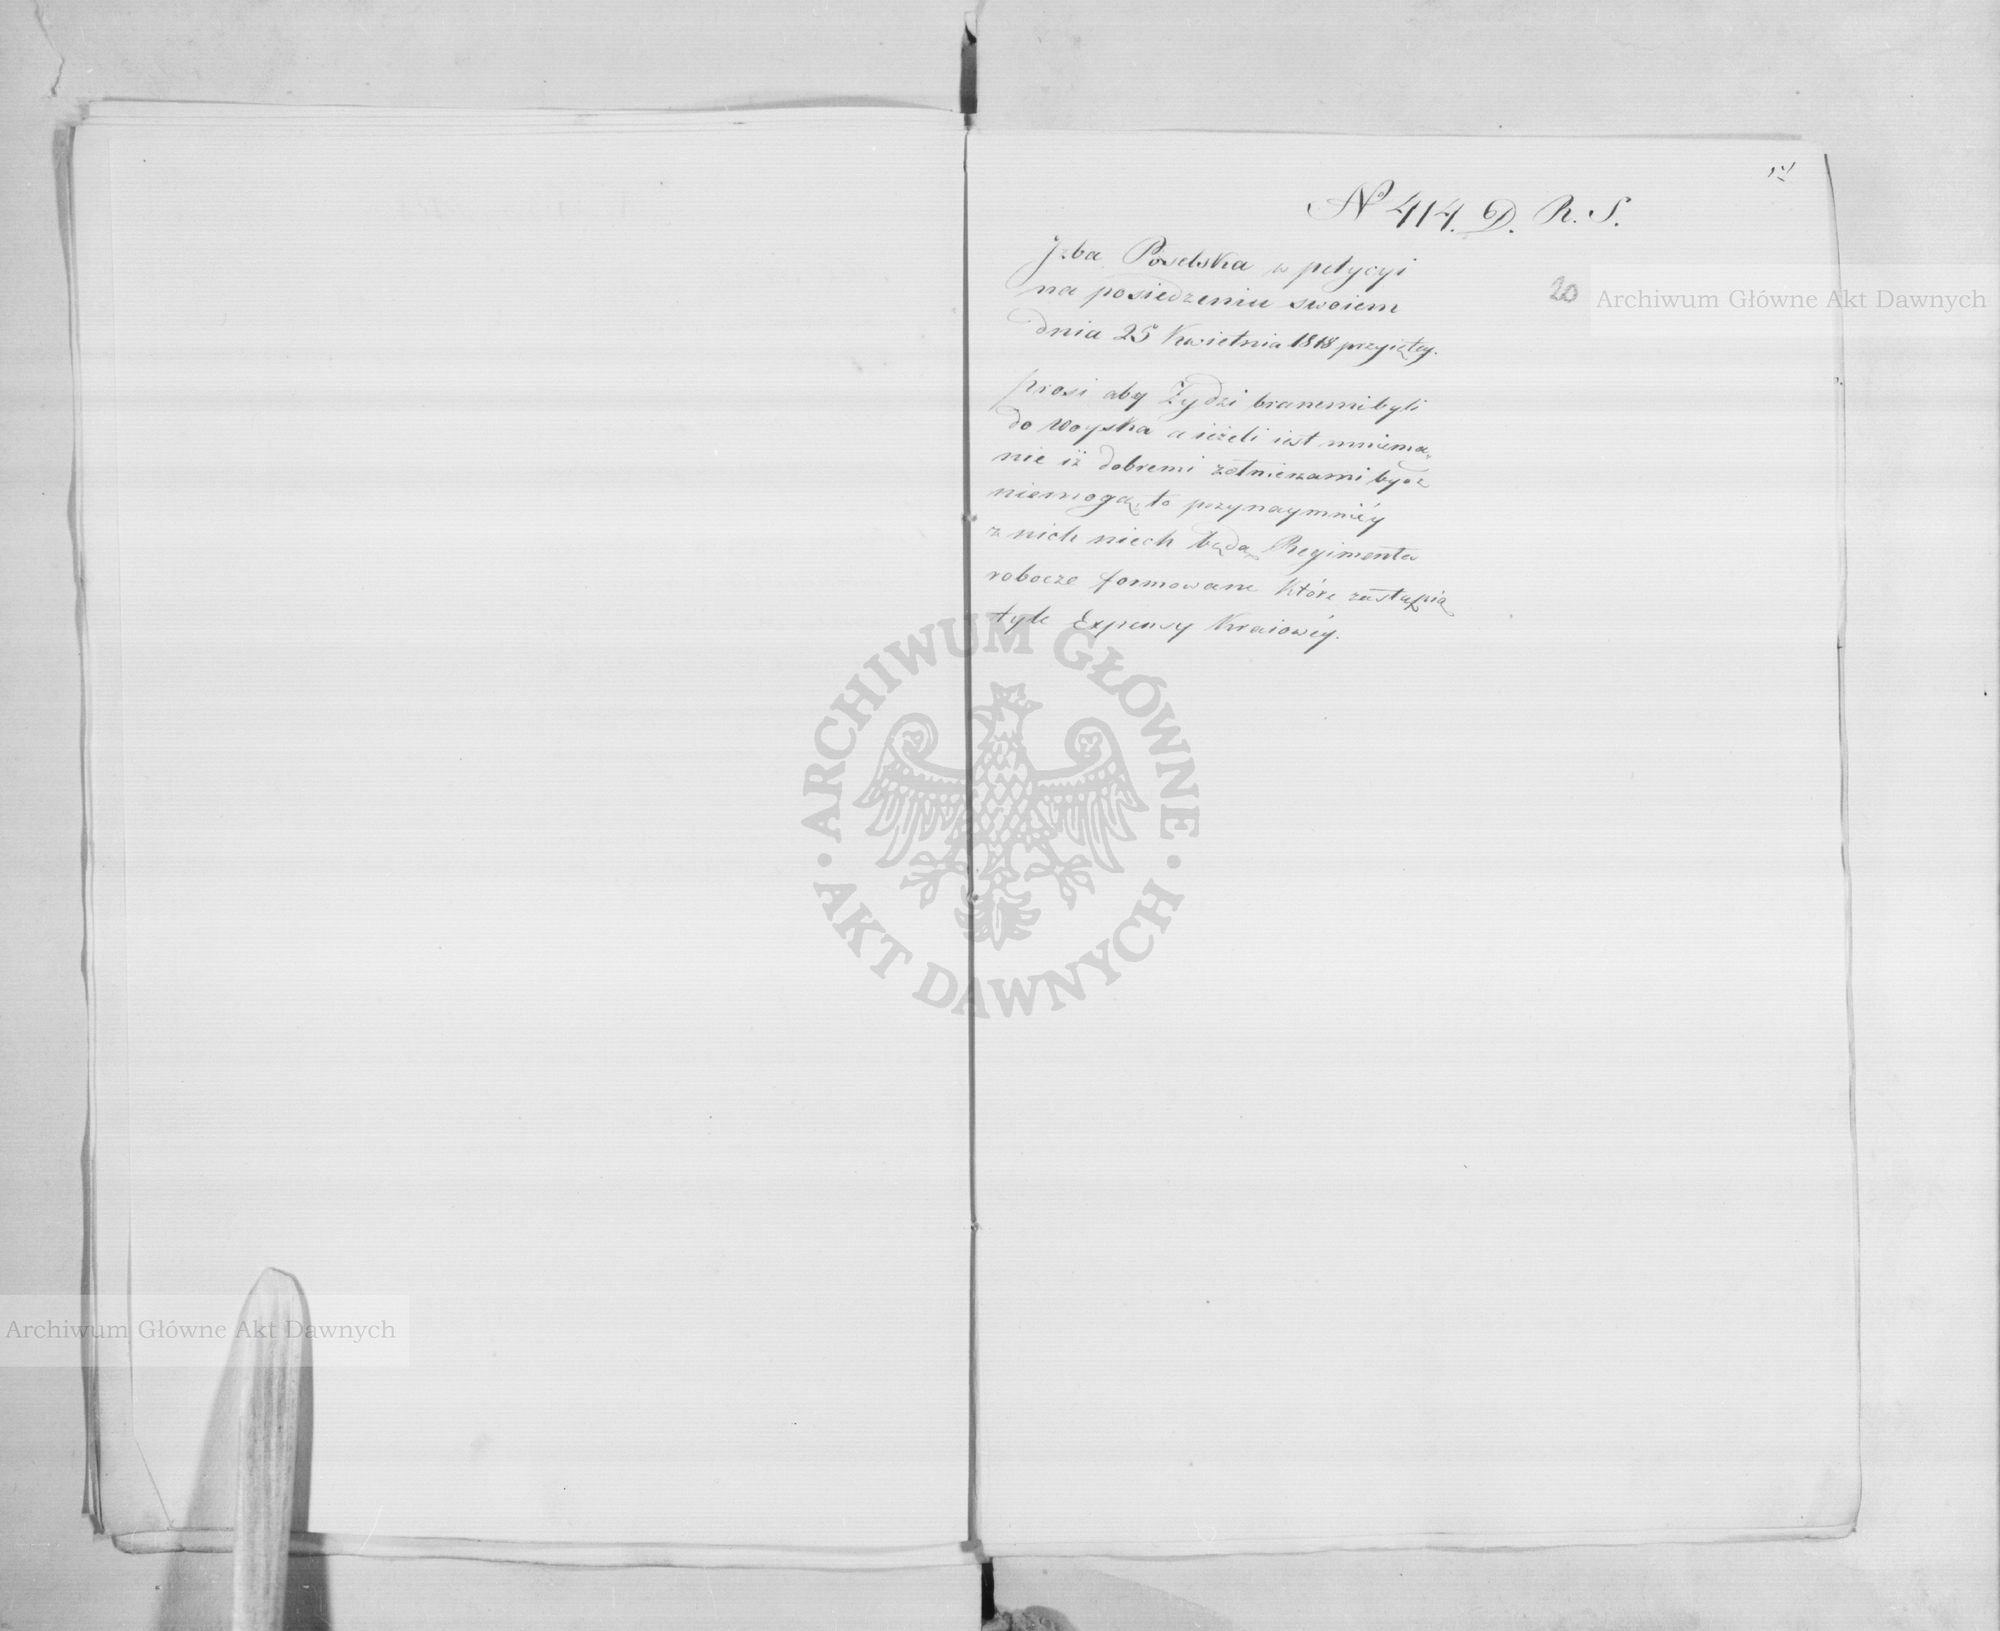 No 414. D. R. S.
20
Izba Poselska w petycyi
na posiedzeniu swoiem
dnia 25 Kwietnia 1818 przyiętey.
prosi aby Żydzi branemi byli
do woyska a ieżeli iest mniema„
nie iż dobremi żołnierzami bydź
niemogą, to przynaymniéy
z nich niech będą Regimenta
robocze formowane które zastąpią
tyle Expensy Kraiowéy.
Archiwum Główne Akt Dawnych
ARCHIWUM GŁÓWNE
AKT DAWNYCH
Archiwum Główne Akt Dawnych